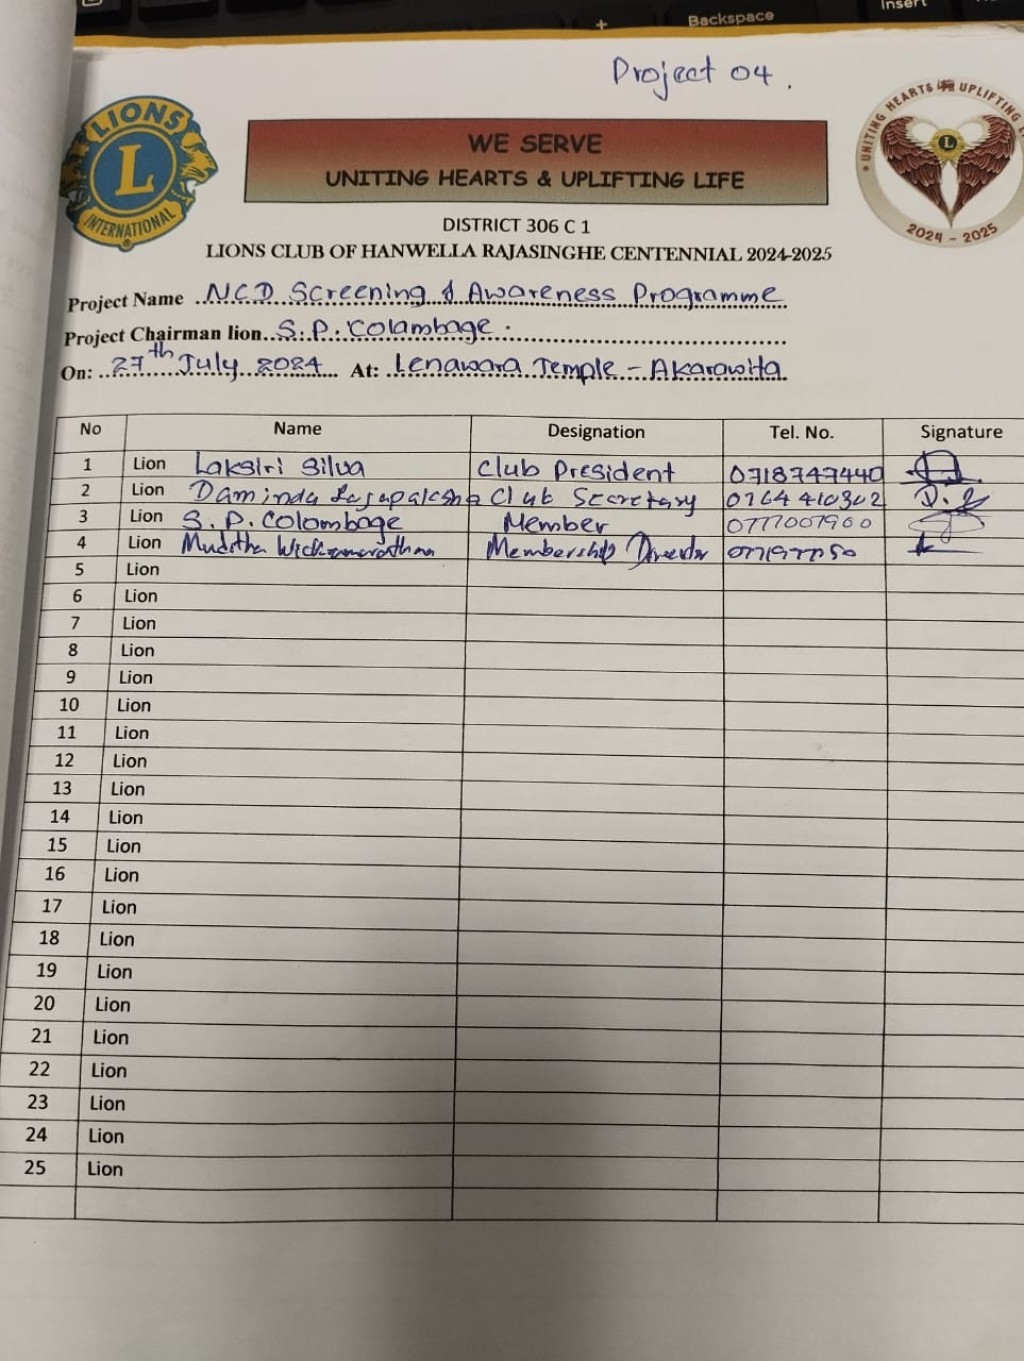 Insert
+
Backspace
Project 04.
LIONS
L
INTERNATIONAL
WE SERVE
UNITING HEARTS & UPLIFTING LIFE
UNITING HEARTS UPLIFTING
L
2024 - 2025
DISTRICT 306 C 1
LIONS CLUB OF HANWELLA RAJASINGHE CENTENNIAL 2024-2025
Project Name NCD Screening & Awareness Programme
Project Chairman lion S. P. Colambage.
On: 27th July 2024 At: Lenawara Temple - Akarawita
No Name Designation Tel. No. Signature
1 Lion Laksiri Silva Club President 0718747440
2 Lion Daminda Rajapaksha Club Secretary 0764410302
3 Lion S. P. Colombage Member 0777007900
4 Lion Muditha Membership Director
5 Lion
6 Lion
7 Lion
8 Lion
9 Lion
10 Lion
11 Lion
12 Lion
13 Lion
14 Lion
15 Lion
16 Lion
17 Lion
18 Lion
19 Lion
20 Lion
21 Lion
22 Lion
23 Lion
24 Lion
25 Lion